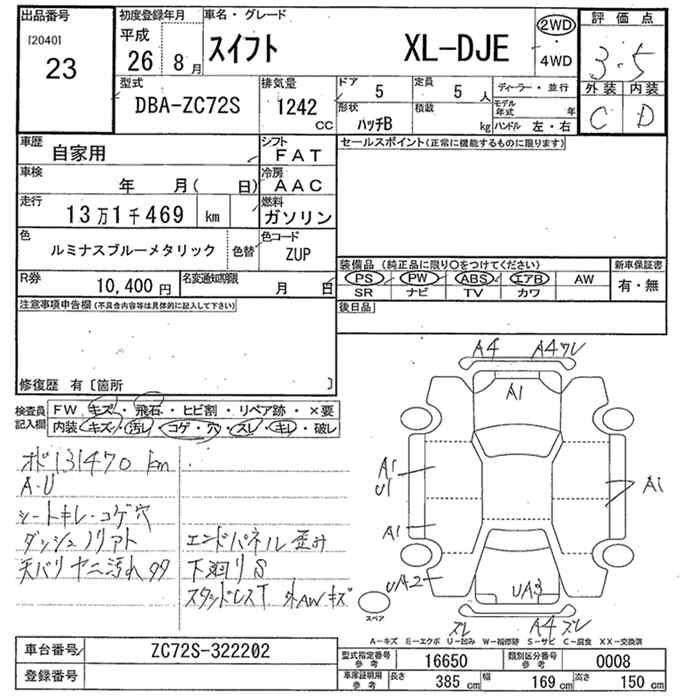 出品番号
[2040]
23
初度登録年月
平成
26年 8月
車名・グレード
スイフト XL-DJE
2WD
・
4WD
評価点
3.5
外装 内装
C D
型式
DBA-ZC72S
排気量
1242
CC
ドア 5
定員 5 人
ディーラー・並行
形状 ハッチB
積載 kg
モデル年式 年
ハンドル 左・右
車歴
自家用
シフト
FAT
セールスポイント(正常に機能するものに限ります)
車検
年 月( 日)
冷房
AAC
走行
13万1千469 km
燃料
ガソリン
色
ルミナスブルーメタリック
色替
色コード
ZUP
R券
10,400 円
名変通知期限
月 日
装備品(純正品に限り○をつけてください)
新車保証書
PS PW ABS エアB AW
有・無
SR ナビ TV カワ
注意事項申告欄(不具合内容等は具体的に記入して下さい)
後日品
修復歴 有〔箇所 〕
検査員
記入欄
FW キズ・飛石・ヒビ割・リペア跡・×要
内装 キズ・汚レ・コゲ・穴・スレ・キレ・破レ
A4 A4ワレ
A1
A1
U1
A1
A1
UA2
UA3
スレ A4 スレ
スペア
ホド131470 km
A・U
シートキレ・コゲ穴
ダッシュノリアト エンドパネル歪み
天バリヤニ汚れ 下廻りS
スタッドレスT 外AWキズ
A-キズ E-エクボ U-凹み W-補修跡 S-サビ C-腐食 XX-交換済
車台番号
ZC72S-322202
登録番号
型式指定番号
参考
16650
類別区分番号
参考
0008
車庫証明用
参考
長さ 385 cm
幅 169 cm
高さ 150 cm